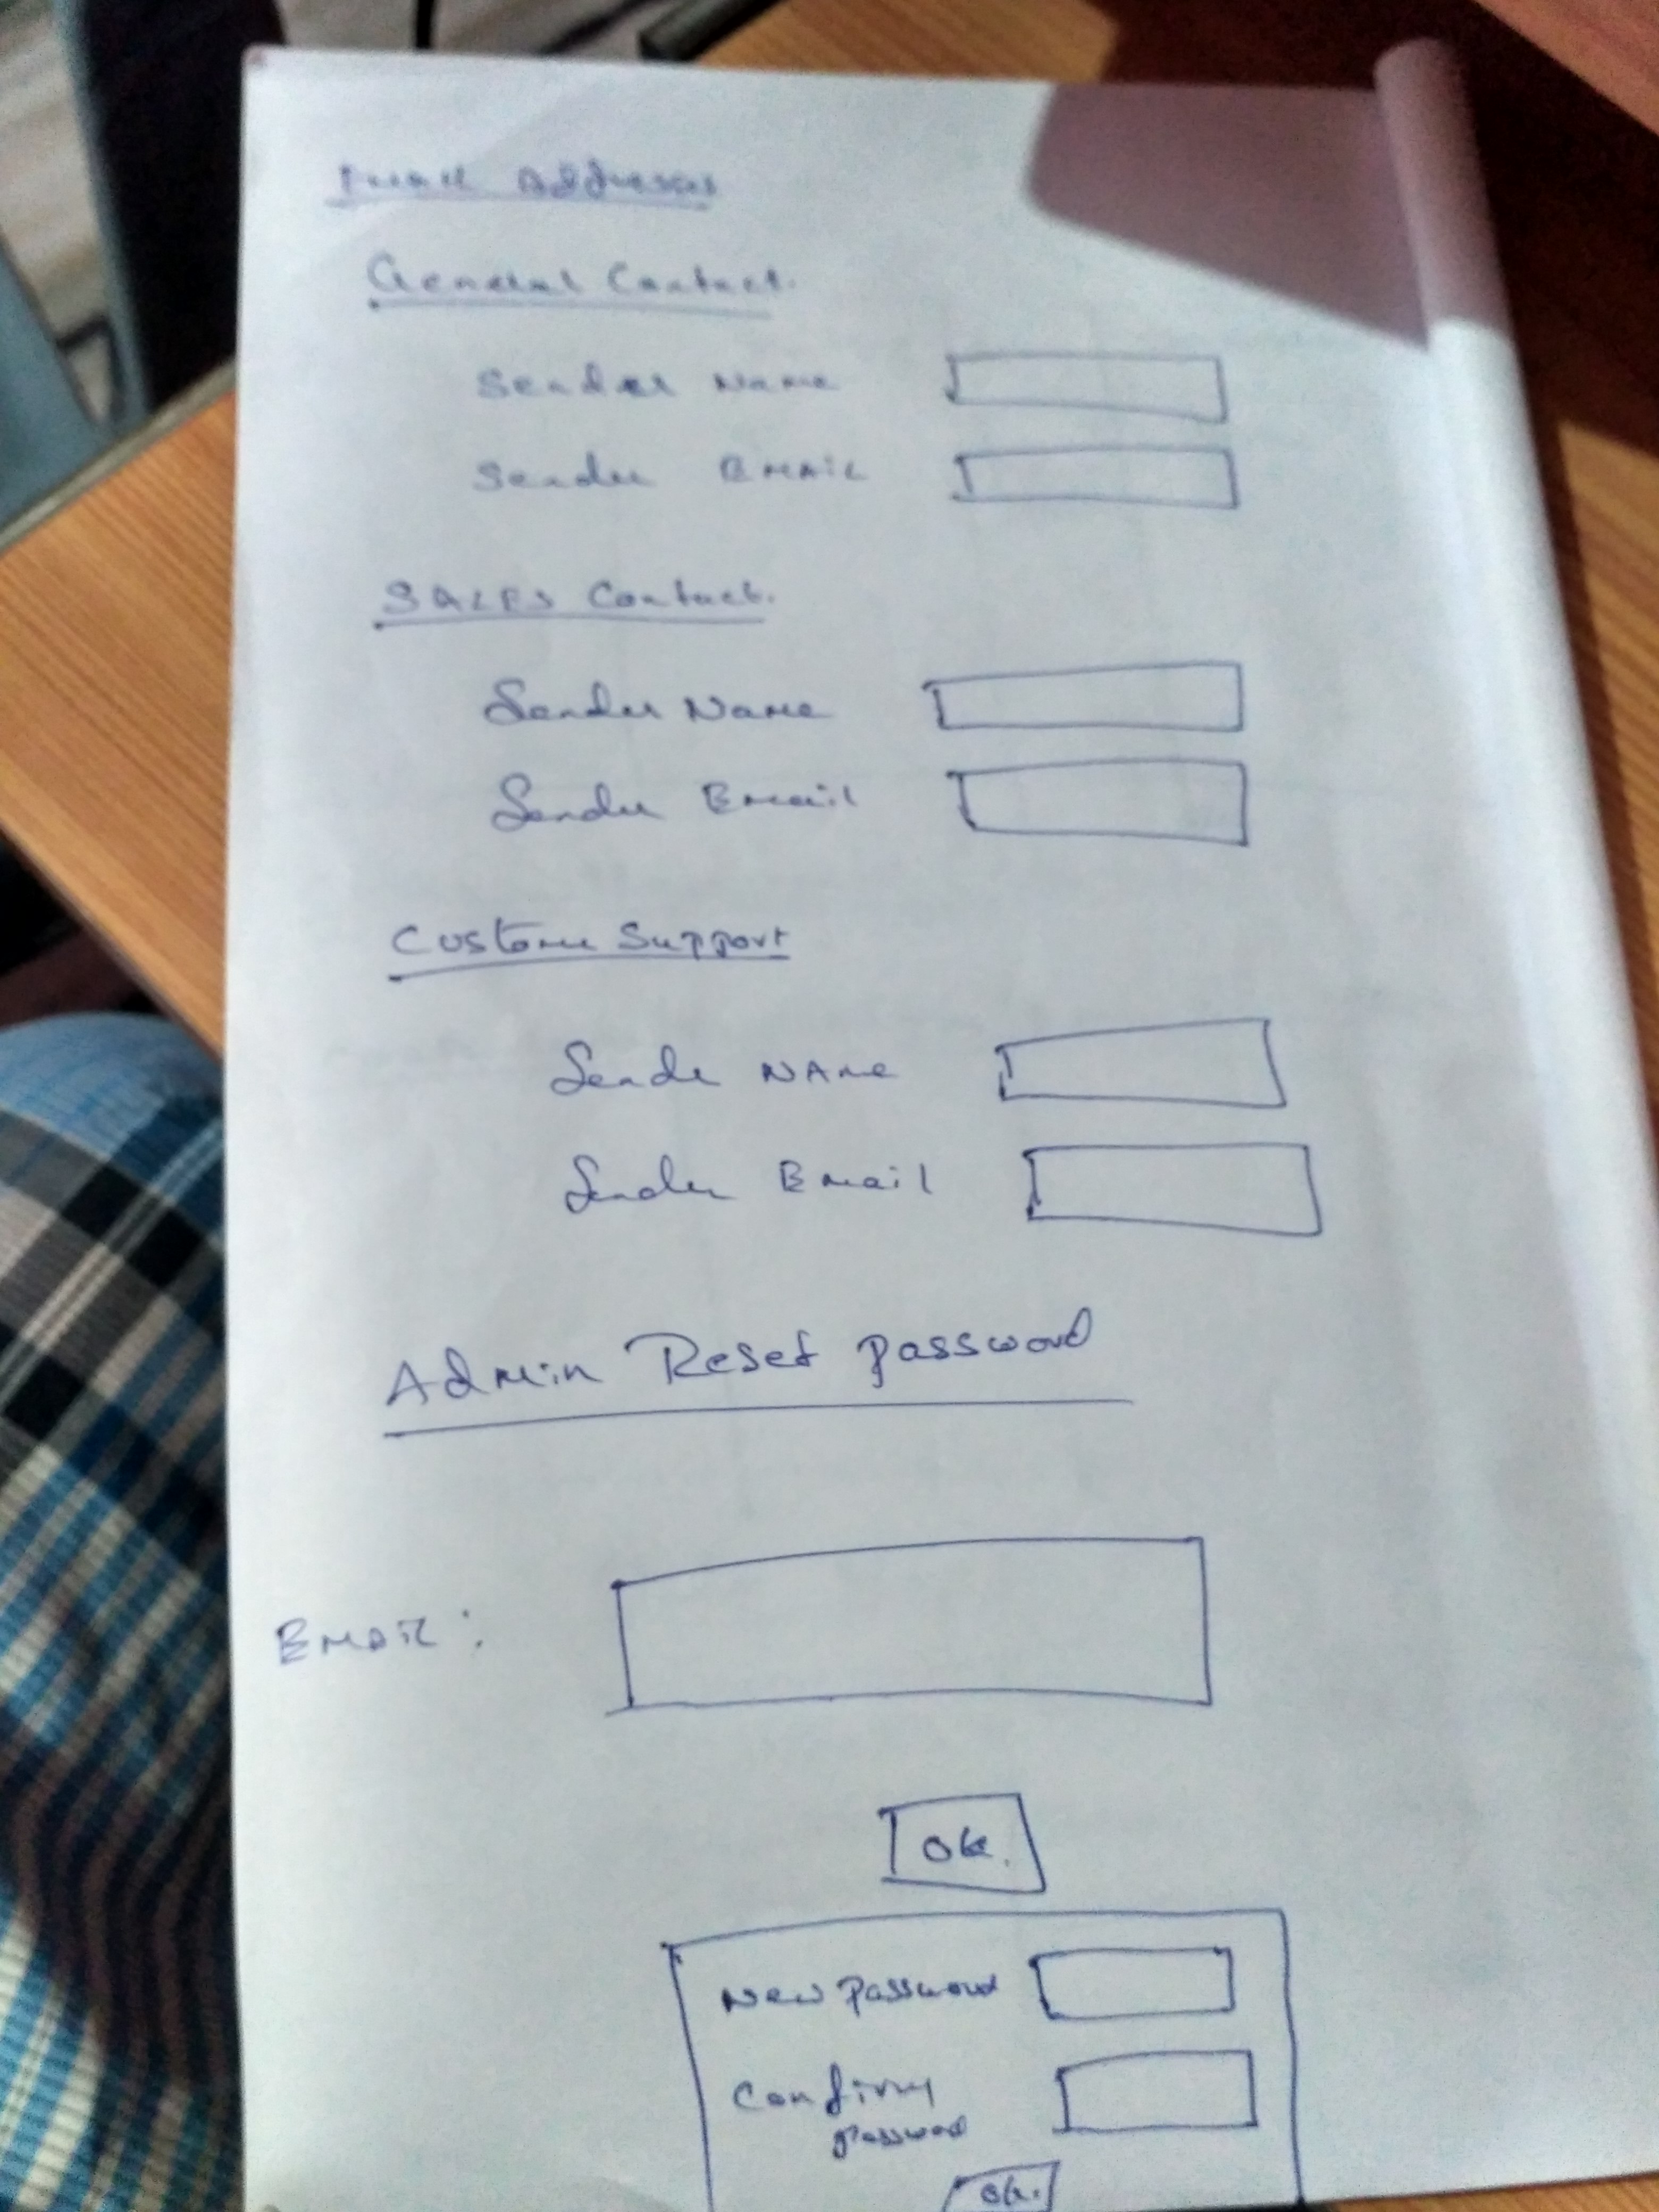 Email Addresses
General Contact.
Sender Name
Sender EMAIL
SALES Contact.
Sender Name
Sender Email
Custome Support
Sende NAme
Sender Email
Admin Reset password
EMAIL :
OK.
New Password
Confirm
password
Ok.